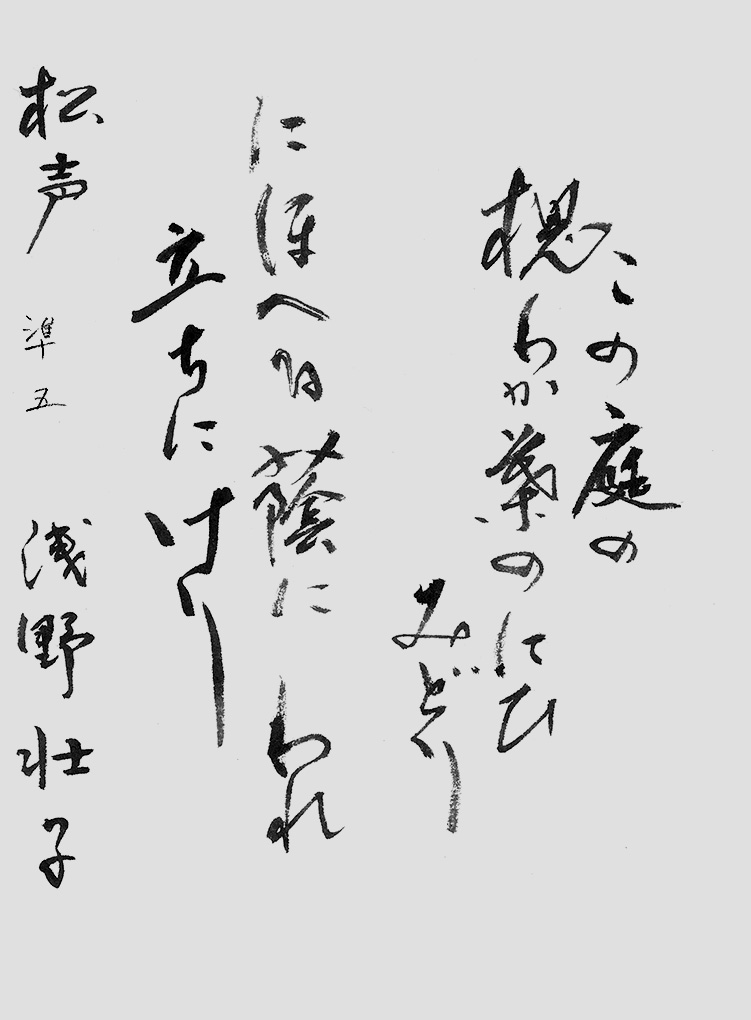 この庭の
槐わか葉のにひ
みどり
にほへる蔭に われ
立ちにけり
松声 準五 浅野壮子